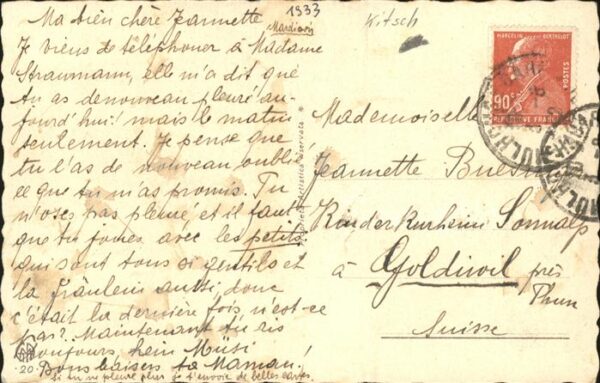 1933
Kitsch
Ma bien chère Jeannette
Mardi soir
Je viens de téléphoner à Madame
Straumann, elle m'a dit que
tu as denouveau pleuré au-
jourd'hui mais le matin
seulement. Je pense que
tu l'as de nouveau oublié
ce que tu m'as promis. Tu
n'oses pas pleuré, et il faut
que tu joues avec les petits
qui sont tous si gentils et
la Fräulein aussi, donc
c'était la dernière fois, n'est-ce
pas? Maintenant tu ris
toujours, hein Müsi
Bons baisers ta Maman!
si tu ne pleure plus je t'envoie de belles cartes.
20
Proprietà artistica riservata
MARCELIN BERTHELOT
POSTES
90c
REPUBLIQUE FRANÇAISE
MULHOUSE
Mademoiselle
Jeannette
Kinderkurheim Sonnalp
à Goldiwil près
Thun
Suisse